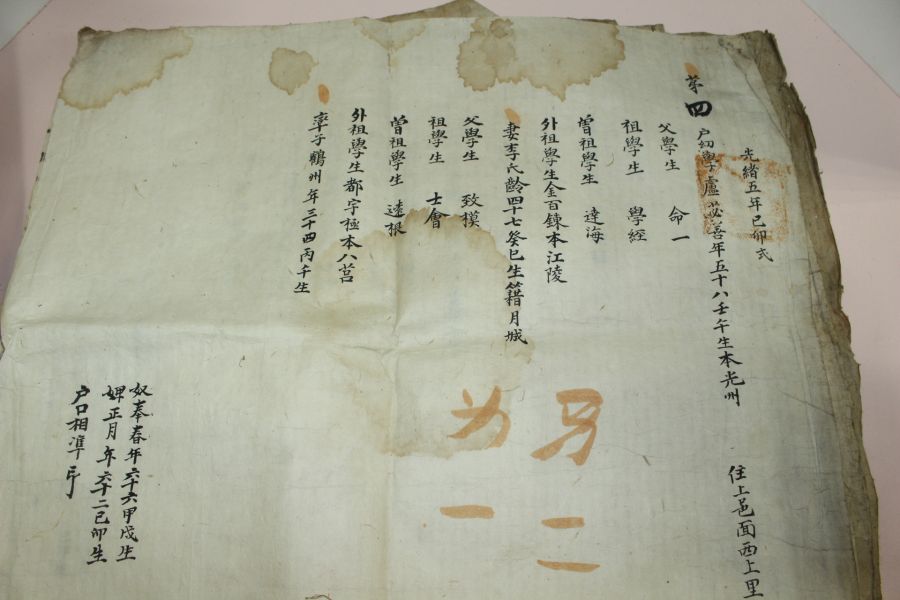 光緒五年己卯式
住上邑面西上里
第四
戶幼學盧苾吾年五十八壬午生本光州
父學生 命一
祖學生 學經
曾祖學生 達海
外祖學生金百鍊本江陵
妻李氏齡四十七癸巳生籍月城
父學生 致模
祖學生 士會
曾祖學生 遠根
外祖學生都宇極本八莒
率子鶴州年三十四丙午生
男二
女一
奴奉春年六十六甲戌生
婢正月年六十二己卯生
戶口相準印